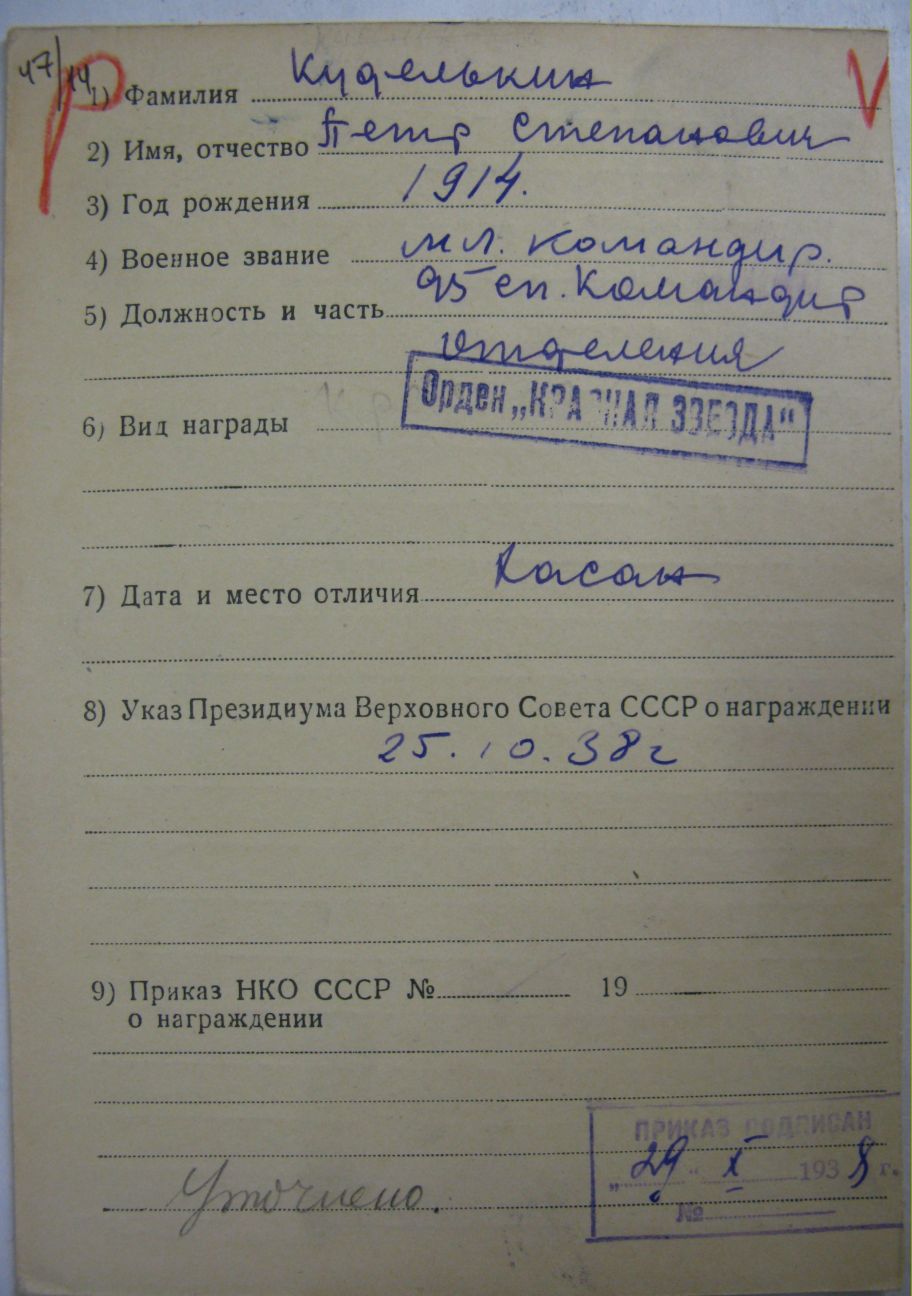 47/14
1) Фамилия Куделькин
2) Имя, отчество Петр Степанович
3) Год рождения 1914.
4) Военное звание мл. командир.
5) Должность и часть 95 сп. Командир
отделения
6) Вид награды Орден „КРАСНАЯ ЗВЕЗДА“
7) Дата и место отличия Хасан
8) Указ Президиума Верховного Совета СССР о награждении
25.10.38г
9) Приказ НКО СССР № 19
о награждении
ПРИКАЗ ПОДПИСАН
„29“ X 1938 г.
№
Уточнено.